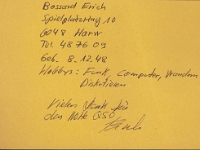 Bossard Erich
Spielplatzring 10
6048 Horw
Tel 48 76 09
Geb. 8.12.48
Hobbys: Funk, Computer, Wandern
Vielen Dank für
das nette QSO
Erich